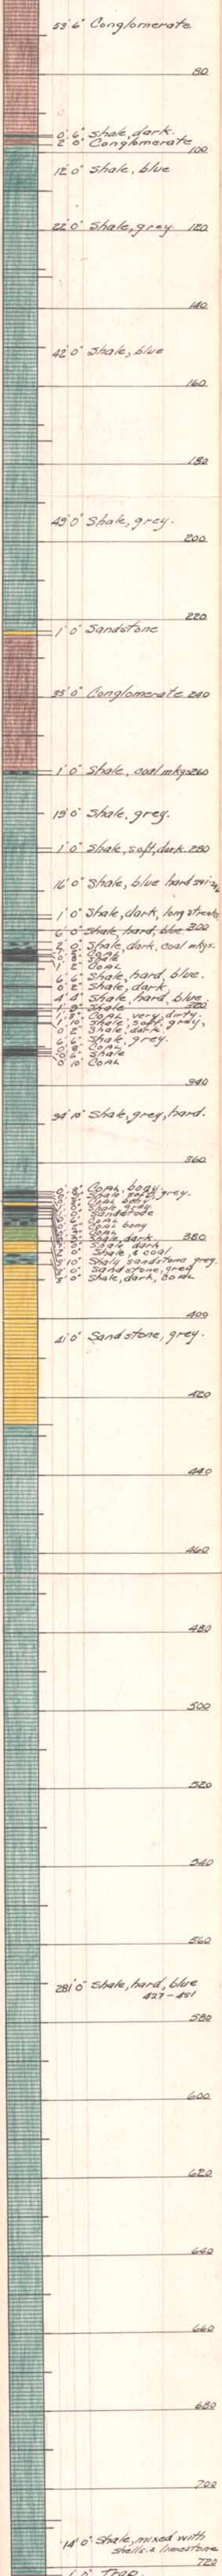 53' 6" Conglomerate
80
0' 6" Shale, dark.
2' 0" Conglomerate
100
12' 0" Shale, blue
22' 0" Shale, grey 120
140
42' 0" Shale, blue
160
180
49' 0" Shale, grey.
200
220
1' 0" Sandstone
35' 0" Conglomerate 240
1' 0" Shale, coal mkgs. 260
19' 0" Shale, grey.
1' 0" Shale, soft, dark. 280
16' 0" Shale, blue hard
1' 0" Shale, dark, long streaks
6' 0" Shale, hard, blue 300
Shale, dark, coal mkgs.
Coal
Shale, hard, blue.
Shale, dark
Shale, hard, blue
Shale 320
Coal, very dirty.
Shale, soft, grey,
dark.
Shale, grey.
Coal
Shale
0' 10" Coal
340
34' 10" Shale, grey, hard.
360
Coal, bony.
Shale, soft, grey.
Sandstone
Coal
bony
Shale, dark 380
Shale & coal
Shaly sandstone grey.
Sandstone, grey
Shale, dark, coal
400
41' 0" Sandstone, grey.
420
440
460
480
500
520
540
560
281' 0" Shale, hard, blue
427-451
580
600
620
640
660
680
700
14' 0" Shale, mixed with
shells & limestone
720
Trap.